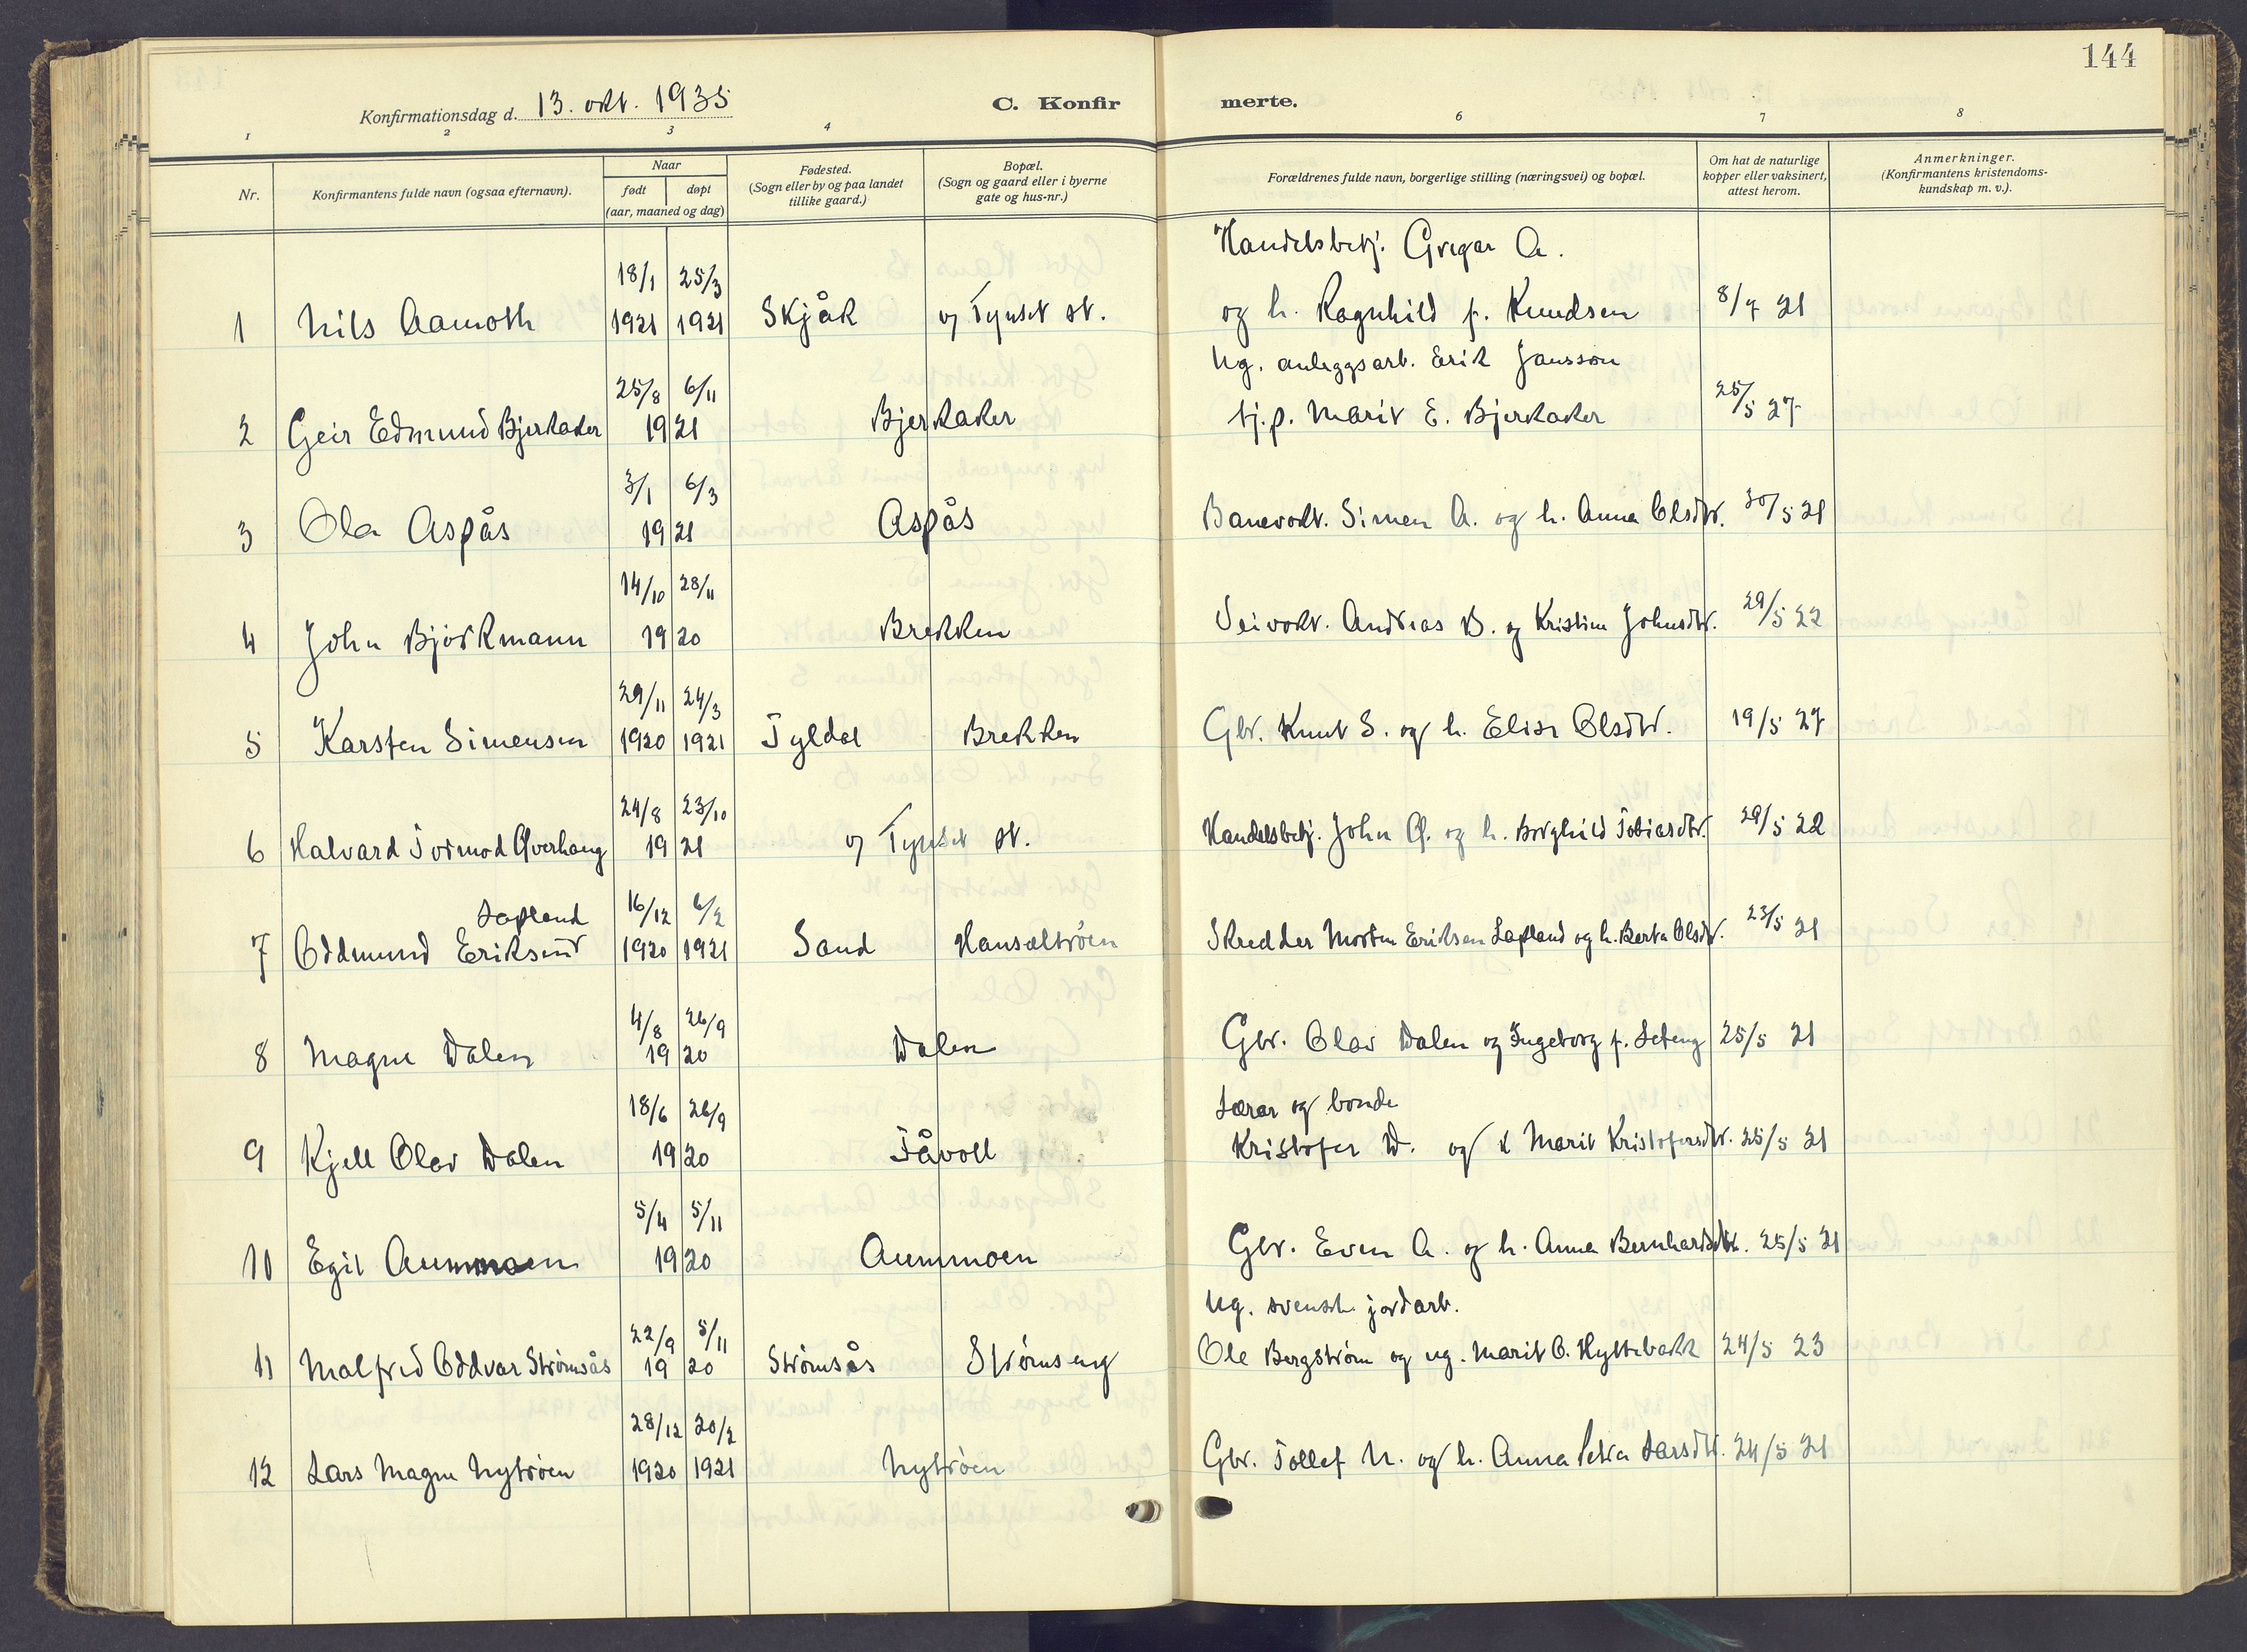 144
Konfirmationsdag d. 13. okt. 1935
C. Konfir merte.
1 2 3 4 6 7 8
Nr.
Konfirmantens fulde navn (ogsaa efternavn).
Naar
født døpt
(aar, maaned og dag)
Fødested.
(Sogn eller by og paa landet
tillike gaard.)
Bopæl.
(Sogn og gaard eller i byerne
gate og hus-nr.)
Forældrenes fulde navn, borgerlige stilling (næringsvei) og bopæl.
Om hat de naturlige
kopper eller vaksinert,
attest herom.
Anmerkninger.
(Konfirmantens kristendoms-
kundskap m. v.).
Handelsbetj. Gregar A.
18/1 25/3
1 Nils Aamoth 1921 1921 Skjåk Tynset st. og h. Ragnhild f. Knudsen 8/7 21
Ug. anleggsarb. Erik Jansson
25/8 6/11
2 Geir Edmund Bjerkaker 1921 Bjerkaker tj.p. Marit E. Bjerkaker 25/5 27
3/1 6/3
3 Ola Aspås 1921 Aspås Banevokt. Simen A. og h. Anna Olsdtr. 30/5 21
14/10 28/11
4 John Björkmann 1920 Brekken Veivokt. Andreas B. og Kristine Johnsdtr. 29/5 22
29/11 24/3
5 Karsten Simensen 1920 1921 Tyldal Brekken Gbr. Knut S. og h. Elise Olsdtr. 19/5 27
24/8 23/10
6 Halvard Tormod Øverhaug 1921 Tynset st. Handelsbetj. John Ø. og h. Borghild Tobiasdtr. 29/5 22
Lapland
16/12 6/2
7 Oddmund Eriksen 1920 1921 Sand Hansæltrøen Skredder Morten Eriksen Lapland og h. Berta Olsdtr. 23/5 21
4/8 26/9
8 Magne Dalen 1920 Dalen Gbr. Olav Dalen og Ingeborg f. Seteng 25/5 21
18/6 26/9
Lærar og bonde
9 Kjell Olav Dalen 1920 Tåvoll Kristofer D. og k Marit Kristofersdtr. 25/5 21
5/4 5/11
10 Egil Aummoen 1920 Aummoen Gbr. Even A. og h. Anna Bernhardsdtr. 25/5 21
Ug. svensk jordarb.
22/9 5/11
11 Malfred Oddvar Strømsås 1920 Strømsås Strømseng Ole Bergstrøm og ug. Marit O. Hyttebakk 24/5 23
28/12 20/2
12 Lars Magne Nytrøen 1920 1921 Nytrøen Gbr. Tollef N. og h. Anna Petra Larsdtr. 24/5 21